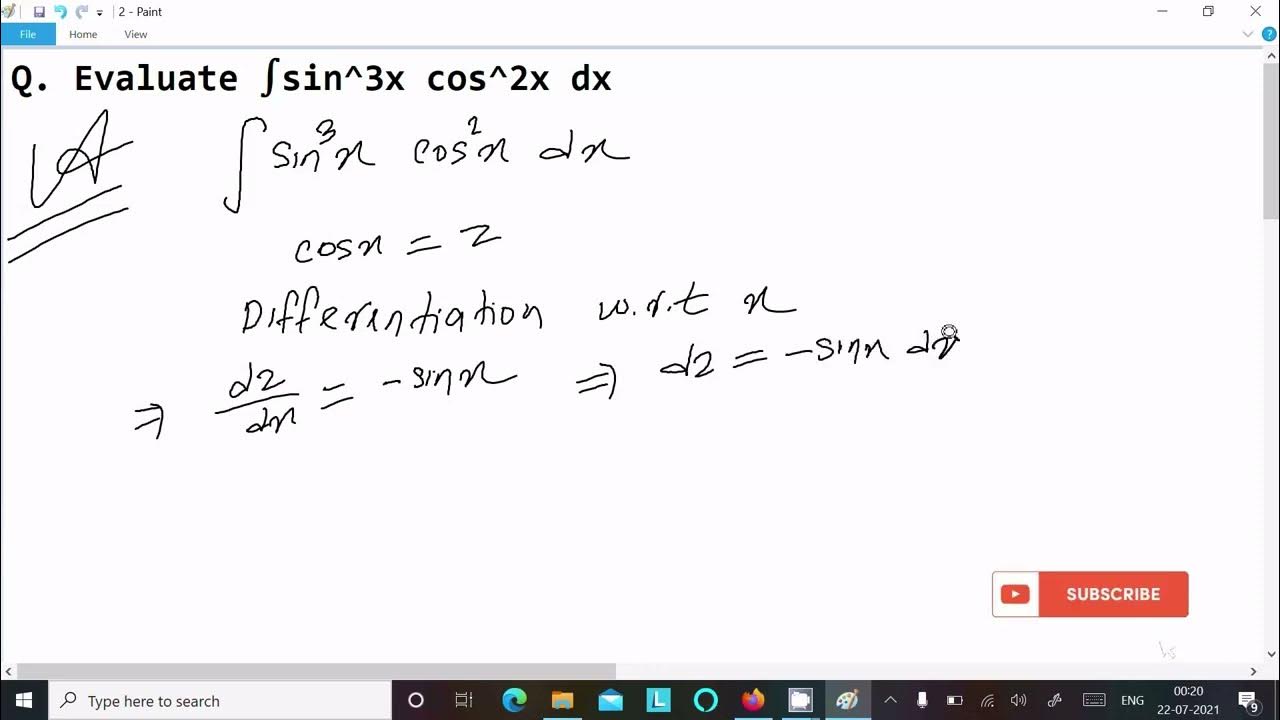 2 - Paint
File Home View
Q. Evaluate ∫sin^3x cos^2x dx
∫ sin³x cos²x dx
cosx = z
Differentiation w.r.t x
⇒ dz/dx = -sinx ⇒ dz = -sinx dx
SUBSCRIBE
Type here to search
L
ENG
00:20
22-07-2021
9